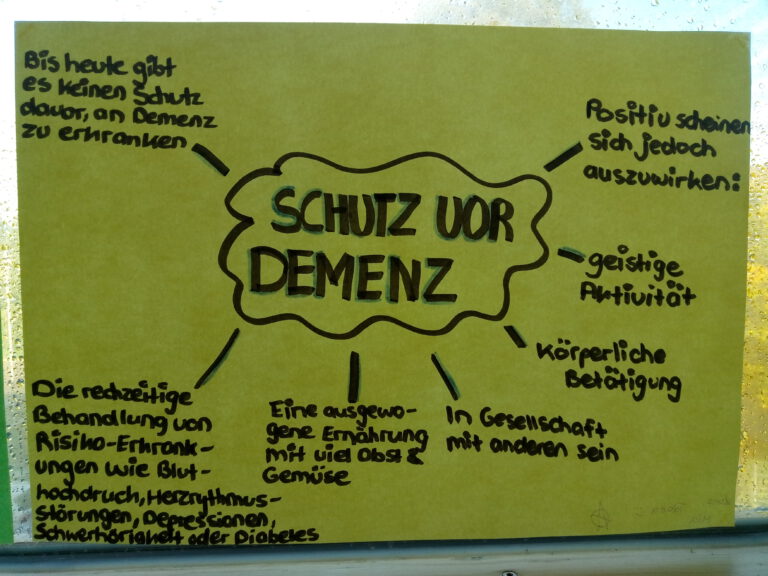 Bis heute gibt
es keinen Schutz
davor, an Demenz
zu erkranken
SCHUTZ VOR
DEMENZ
Positiv scheinen
sich jedoch
auszuwirken:
geistige
Aktivität
Körperliche
Betätigung
In Gesellschaft
mit anderen sein
Eine ausgewo-
gene Ernährung
mit viel Obst &
Gemüse
Die rechzeitige
Behandlung von
Risiko-Erkrank-
ungen wie Blut-
hochdruck, Herzrythmus-
störungen, Depressionen,
Schwerhörigkeit oder Diabetes